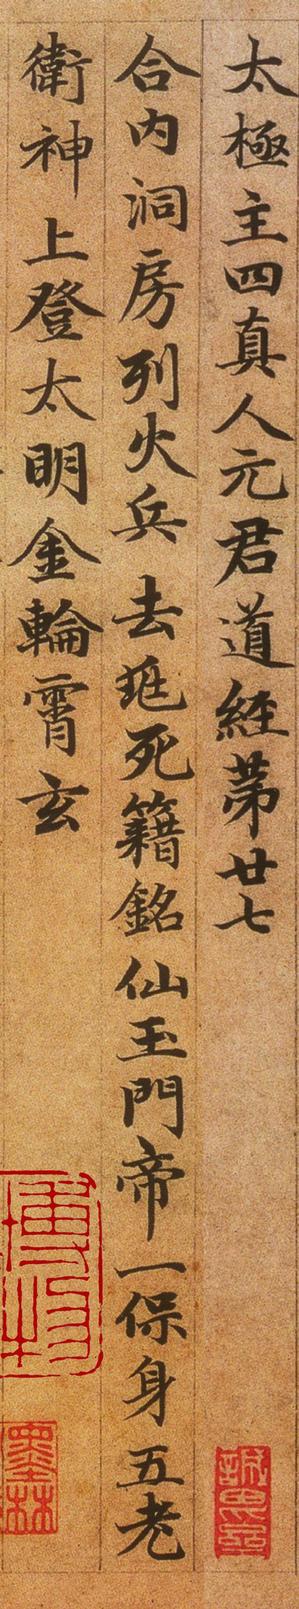 太極主四真人元君道經苐廿七
合内洞房列火兵去殗死籍銘仙玉門帝一保身五老
衛神上登太明金輪霄玄
博物
墨林